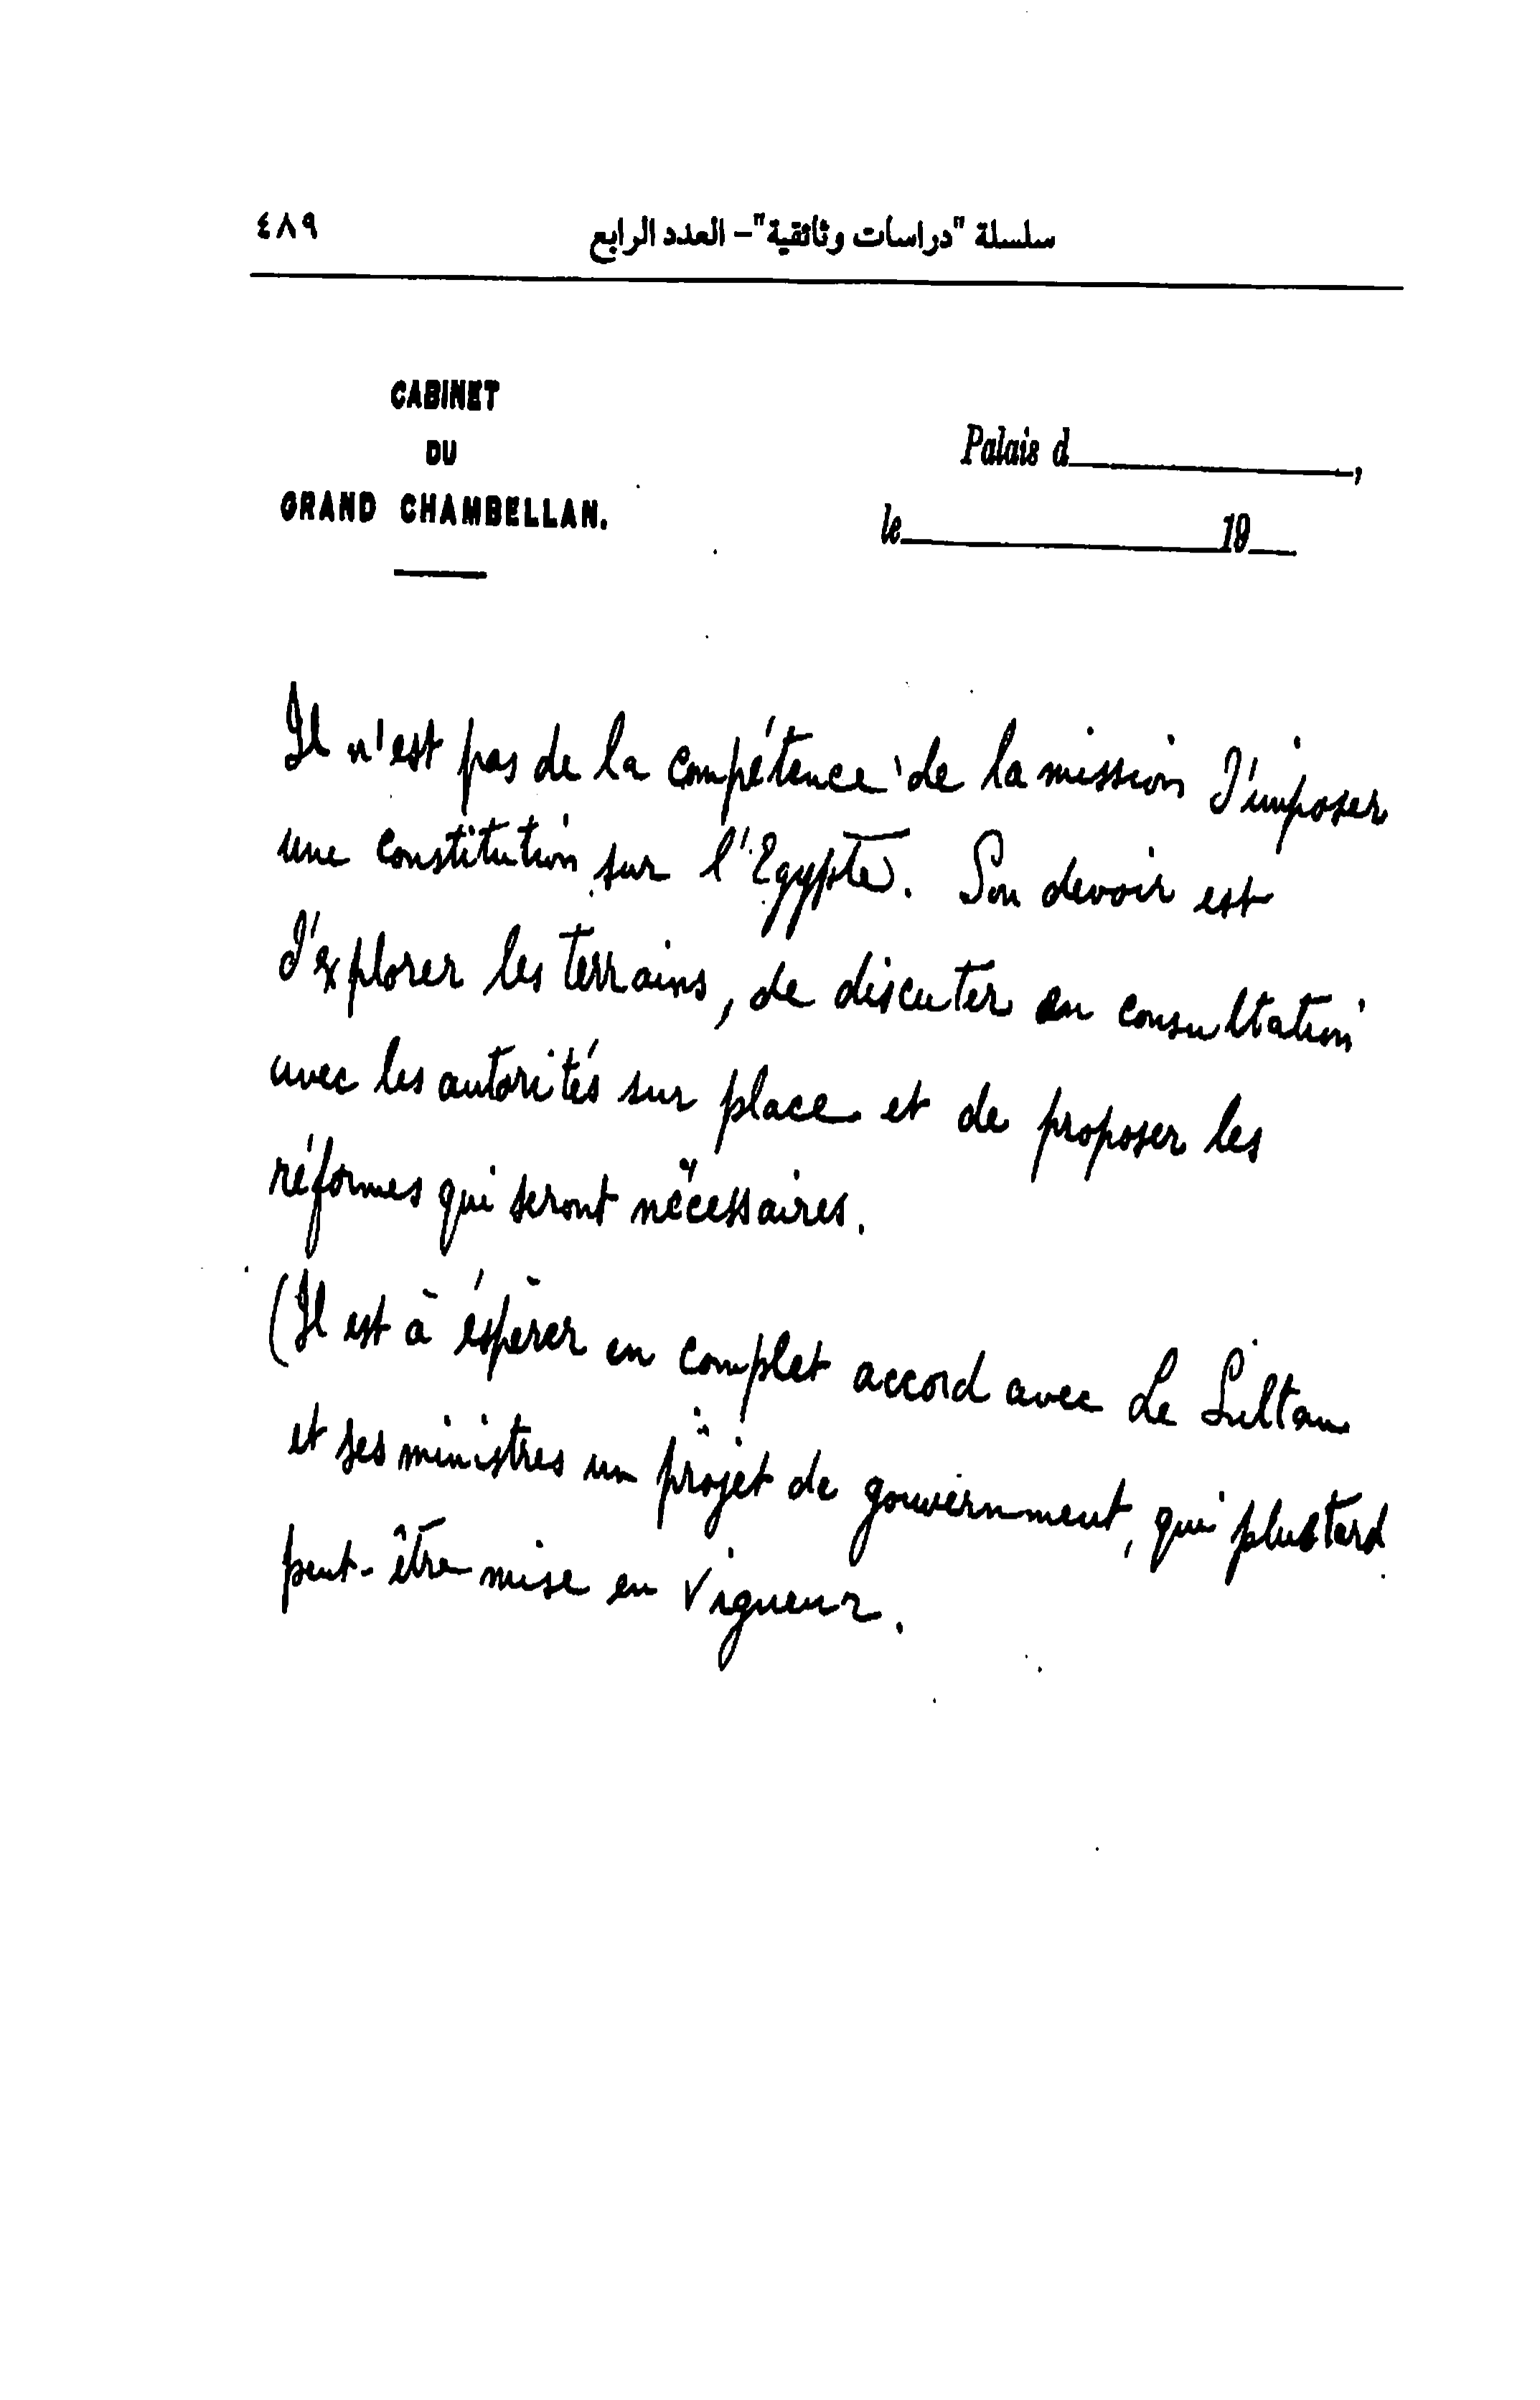 سلسلة "دراسات وثائقية"– العدد الرابع ٤٨٩
CABINET
DU
GRAND CHAMBELLAN.
Palais d,
le 19
Il n'est pas de la compétence de la mission d'imposer
une constitution sur l'Egypte. Son devoir est
d'explorer les terrains, de discuter en consultation
avec les autorités sur place et de proposer les
réformes qui seront nécessaires.
(Il est à éspérer en complet accord avec Le Sultan
et ses ministres un projet de gouvernment, qui plus tard
peut-être mise en vigueur.